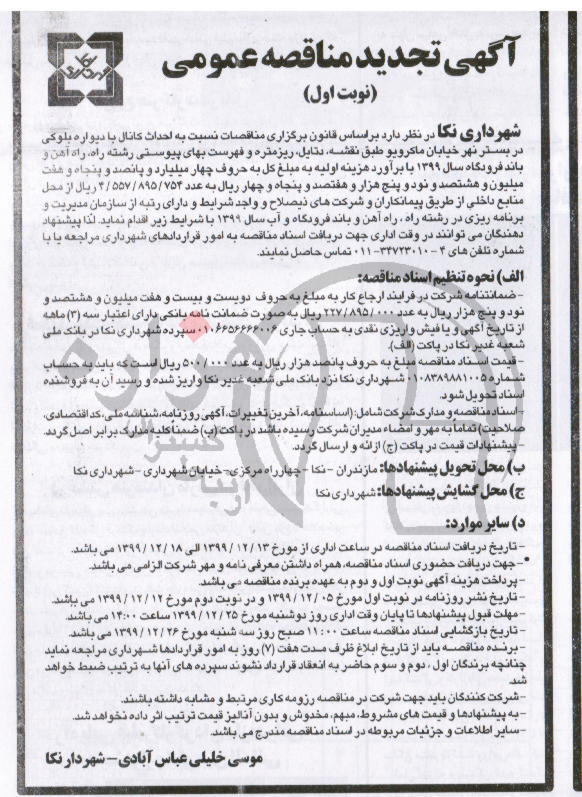 آگهی تجدید مناقصه عمومی
(نوبت اول)
شهرداری نکا در نظر دارد براساس قانون برگزاری مناقصات نسبت به احداث کانال با دیواره بلوکی
در بستر نهر خیابان ماکرویو طبق نقشه، دتایل، ریزمتره و فهرست بهای پیوستی رشته راه، راه آهن و
باند فرودگاه سال ۱۳۹۹ با برآورد هزینه اولیه به مبلغ کل به حروف چهار میلیارد و پانصد و پنجاه و هفت
میلیون و هشتصد و نود و پنج هزار و هفتصد و پنجاه و چهار ریال به عدد ۴/۵۵۷/۸۹۵/۷۵۴ ریال از محل
منابع داخلی از طریق پیمانکاران و شرکت های ذیصلاح و واجد شرایط و دارای رتبه از سازمان مدیریت و
برنامه ریزی در رشته راه، راه آهن و باند فرودگاه و آب سال ۱۳۹۹ با شرایط زیر اقدام نماید. لذا پیشنهاد
دهندگان می توانند در وقت اداری جهت دریافت اسناد مناقصه به امور قراردادهای شهرداری مراجعه یا با
شماره تلفن های ۴ - ۳۴۷۲۳۰۱۰-۰۱۱ تماس حاصل نمایند.
الف) نحوه تنظیم اسناد مناقصه:
-ضمانتنامه شرکت در فرایند ارجاع کار به مبلغ به حروف دویست و بیست و هفت میلیون و هشتصد و
نود و پنج هزار ریال به عدد ۲۲۷/۸۹۵/۰۰۰ ریال به صورت ضمانت نامه بانکی دارای اعتبار سه (۳) ماهه
از تاریخ آگهی و یا فیش واریزی نقدی به حساب جاری ۰۱۰۶۶۵۶۶۶۶۰۰۶ سپرده شهرداری نکا در بانک ملی
شعبه غدیر نکا در پاکت (الف).
- قیمت اسناد مناقصه مبلغ به حروف پانصد هزار ریال به عدد ۵۰۰/۰۰۰ ریال است که باید به حساب
شماره ۰۱۰۸۳۸۹۸۸۱۰۰۵ شهرداری نکا نزد بانک ملی شعبه غدیر نکا واریز شده و رسید آن به فروشنده
اسناد تحویل شود.
- اسناد مناقصه و مدارک شرکت شامل: (اساسنامه، آخرین تغییرات، آگهی روزنامه، شناسه ملی، کد اقتصادی،
صلاحیت) تماماً به مهر و امضاء مدیران شرکت رسیده باشد در پاکت (ب) ضمناً کلیه مدارک برابر اصل گردد.
- پیشنهادات قیمت در پاکت (ج) ارائه و ارسال گردد.
ب) محل تحویل پیشنهادها: مازندران -نکا- چهارراه مرکزی- خیابان شهرداری - شهرداری نکا
ج) محل گشایش پیشنهادها: شهرداری نکا
د) سایر موارد:
- تاریخ دریافت اسناد مناقصه در ساعت اداری از مورخ ۱۳۹۹/۱۲/۱۳ الی ۱۳۹۹/۱۲/۱۸ می باشد.
- جهت دریافت حضوری اسناد مناقصه، همراه داشتن معرفی نامه و مهر شرکت الزامی می باشد.
- پرداخت هزینه آگهی نوبت اول و دوم به عهده برنده مناقصه می باشد.
- تاریخ نشر روزنامه در نوبت اول مورخ ۱۳۹۹/۱۲/۰۵ و در نوبت دوم مورخ ۱۳۹۹/۱۲/۱۲ می باشد.
- مهلت قبول پیشنهادها تا پایان وقت اداری روز دوشنبه مورخ ۱۳۹۹/۱۲/۲۵ ساعت ۱۴:۰۰ می باشد.
- تاریخ بازگشایی اسناد مناقصه ساعت ۱۱:۰۰ صبح روز سه شنبه مورخ ۱۳۹۹/۱۲/۲۶ می باشد.
- برنده مناقصه باید از تاریخ ابلاغ ظرف مدت هفت (۷) روز به امور قراردادها شهرداری مراجعه نماید
چنانچه برندگان اول، دوم و سوم حاضر به انعقاد قرارداد نشوند سپرده های آنها به ترتیب ضبط خواهد
شد.
- شرکت کنندگان باید جهت شرکت در مناقصه رزومه کاری مرتبط و مشابه داشته باشند.
- به پیشنهادها و قیمت های مشروط، مبهم، مخدوش و بدون آنالیز قیمت ترتیب اثر داده نخواهد شد.
- سایر اطلاعات و جزئیات مربوطه در اسناد مناقصه مندرج می باشد.
موسی خلیلی عباس آبادی - شهردار نکا
هزاره